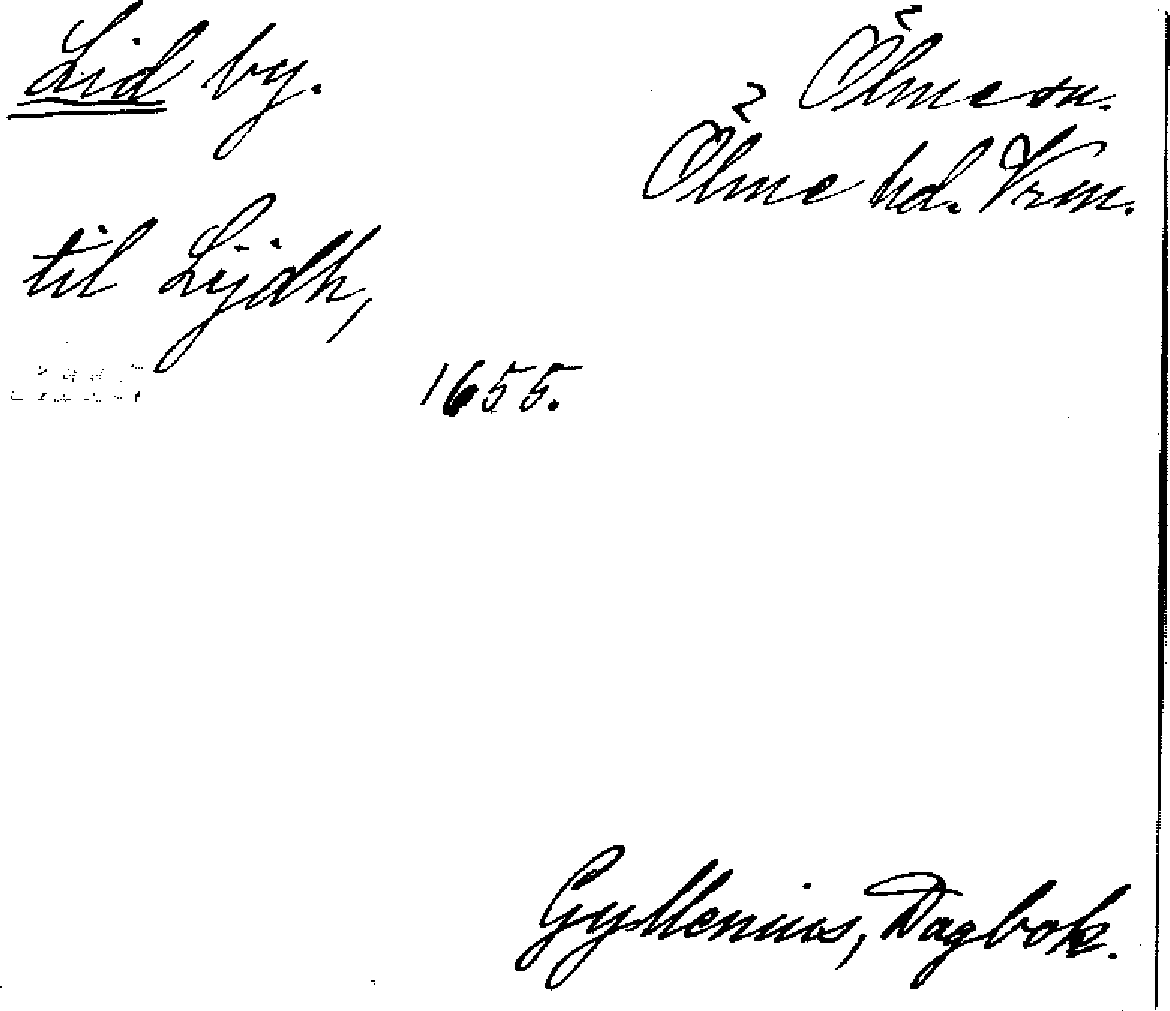 Lid by.
Ölme sn.
Ölme hd. Vrm.
til Lijdh,
1655.
Gyllenius, Dagbok.